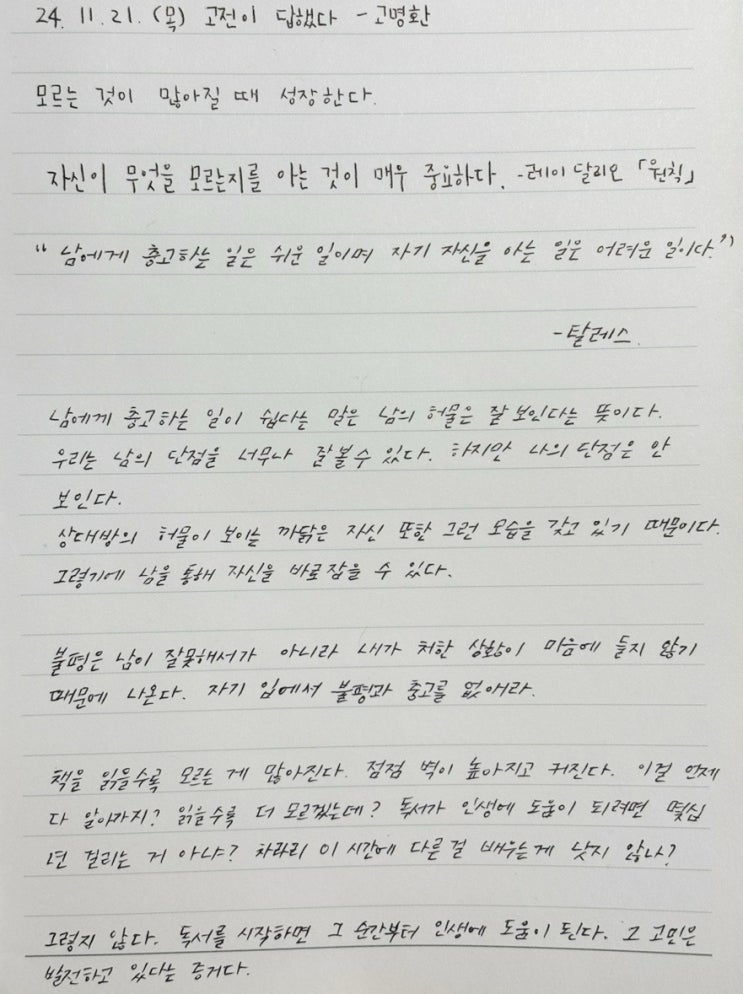 24. 11. 21. (목) 고전이 답했다 - 고명환
모르는 것이 많아질 때 성장한다.
자신이 무엇을 모르는지를 아는 것이 매우 중요하다. -레이 달리오 「원칙」
“ 남에게 충고하는 일은 쉬운 일이며 자기 자신을 아는 일은 어려운 일이다.”
- 탈레스.
남에게 충고하는 일이 쉽다는 말은 남의 허물은 잘 보인다는 뜻이다.
우리는 남의 단점을 너무나 잘 볼 수 있다. 하지만 나의 단점은 안
보인다.
상대방의 허물이 보이는 까닭은 자신 또한 그런 모습을 갖고 있기 때문이다.
그렇기에 남을 통해 자신을 바로 잡을 수 있다.
불평은 남이 잘못해서가 아니라 내가 처한 상황이 마음에 들지 않기
때문에 나온다. 자기 입에서 불평과 충고를 없애라.
책을 읽을수록 모르는 게 많아진다. 점점 벽이 높아지고 커진다. 이걸 언제
다 알아가지? 읽을수록 더 모르겠는데? 독서가 인생에 도움이 되려면 몇십
년 걸리는 거 아냐? 차라리 이 시간에 다른 걸 배우는게 낫지 않나?
그렇지 않다. 독서를 시작하면 그 순간부터 인생에 도움이 된다. 그 고민은
발전하고 있다는 증거다.